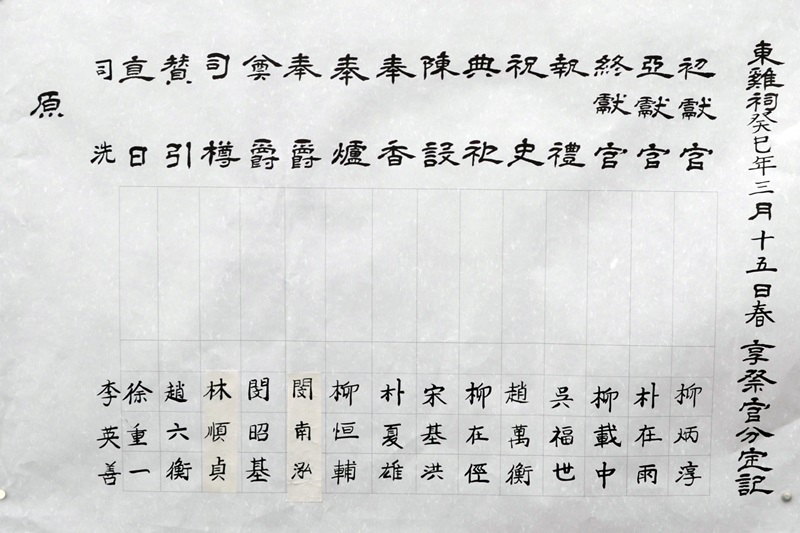 東雞祠癸巳年三月十五日春享祭官分定記
初獻官 柳炳淳
亞獻官 朴在雨
終獻官 柳載中
執禮 吳福世
祝史 趙萬衡
典祀 柳在俓
陳設 宋基洪
奉香 朴夏雄
奉爐 柳恒輔
奉爵 閔南泓
奠爵 閔昭基
司樽 林順貞
贊引 趙六衡
直日 徐重一
司洗 李英善
原